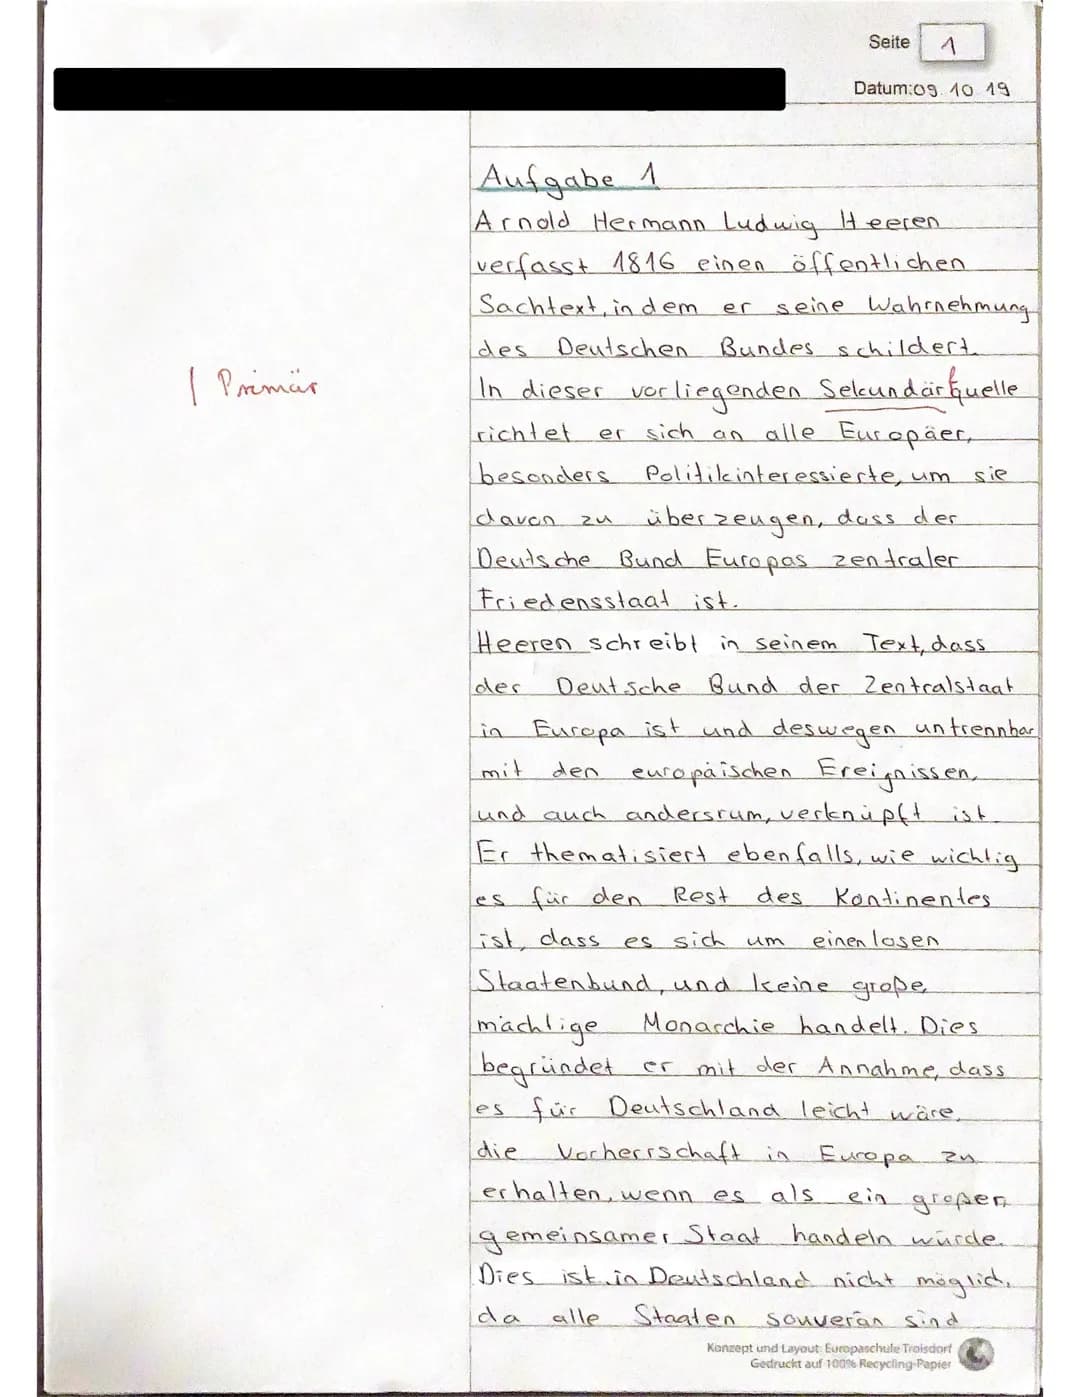 Seite 1
Datum: 09. 10. 19
Aufgabe 1
Arnold Hermann Ludwig Heeren
verfasst 1816 einen öffentlichen
Sachtext, in dem er seine Wahrnehmung
des Deutschen Bundes schildert.
| Primär
In dieser vorliegenden Sekundärquelle
richtet er sich an alle Europäer,
besonders Politikinteressierte, um sie
davon zu überzeugen, dass der
Deutsche Bund Europas zentraler
Friedensstaat ist.
Heeren schreibt in seinem Text, dass
der Deutsche Bund der Zentralstaat
in Europa ist und deswegen untrennbar
mit den europäischen Ereignissen,
und auch andersrum, verknüpft ist.
Er thematisiert ebenfalls, wie wichtig
es für den Rest des Kontinentes
ist, dass es sich um einen losen
Staatenbund, und keine große,
mächtige Monarchie handelt. Dies
begründet er mit der Annahme, dass
es für Deutschland leicht wäre,
die Vorherrschaft in Europa zu
erhalten, wenn es als ein großer,
gemeinsamer Staat handeln würde.
Dies ist in Deutschland nicht möglich,
da alle Staaten souverän sind
Konzept und Layout: Europaschule Troisdorf
Gedruckt auf 100% Recycling-Papier